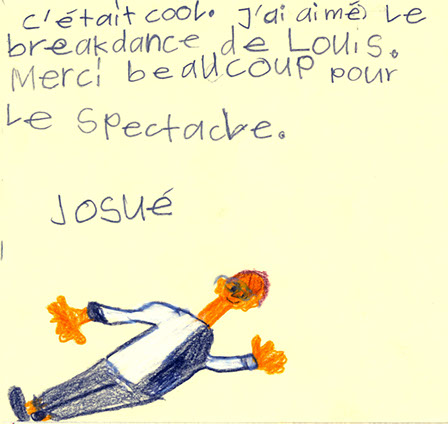 c'était cool. j'ai aimé le
breakdance de Louis.
Merci beaucoup pour
le spectacle.
Josué